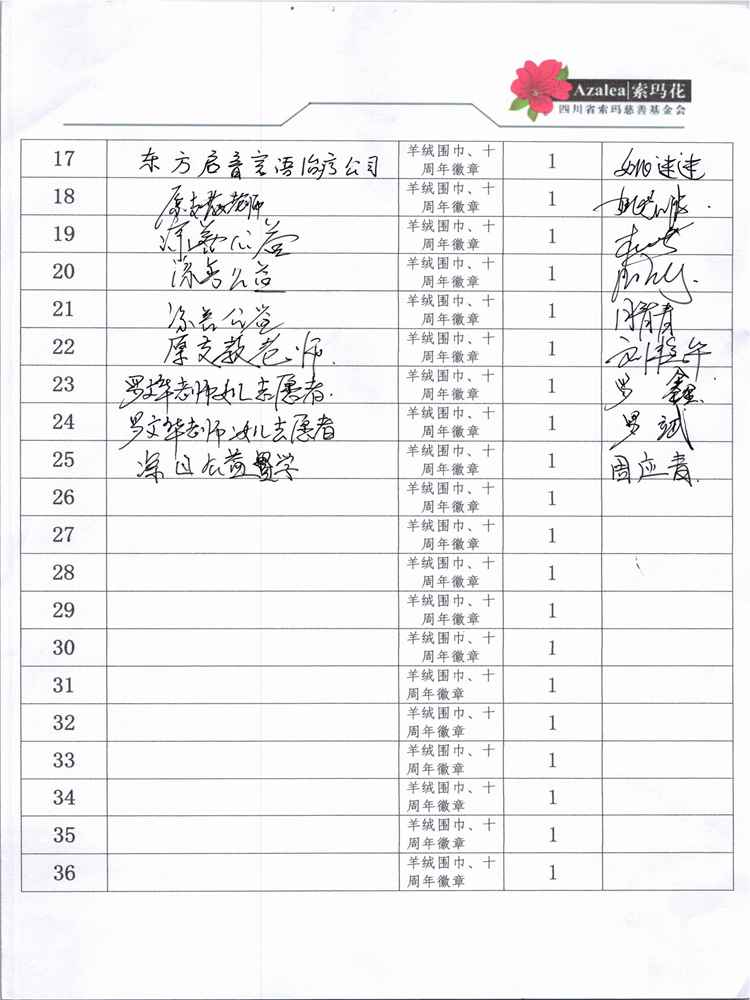 Azalea|索玛花
四川省索玛慈善基金会
17 东方启音言语治疗公司 羊绒围巾、十 1 姚速速
周年徽章
18 原支教老师 羊绒围巾、十 1
周年徽章
19 公益 羊绒围巾、十 1
周年徽章
20 公益 羊绒围巾、十 1
周年徽章
21 公益 羊绒围巾、十 1
周年徽章
22 原支教老师 羊绒围巾、十 1
周年徽章
23 老师 志愿者 羊绒围巾、十 1 罗鑫
周年徽章
24 老师 志愿者 羊绒围巾、十 1 罗斌
周年徽章
25 公益 学 羊绒围巾、十 1 周应青
周年徽章
26 羊绒围巾、十 1
周年徽章
27 羊绒围巾、十 1
周年徽章
28 羊绒围巾、十 1
周年徽章
29 羊绒围巾、十 1
周年徽章
30 羊绒围巾、十 1
周年徽章
31 羊绒围巾、十 1
周年徽章
32 羊绒围巾、十 1
周年徽章
33 羊绒围巾、十 1
周年徽章
34 羊绒围巾、十 1
周年徽章
35 羊绒围巾、十 1
周年徽章
36 羊绒围巾、十 1
周年徽章